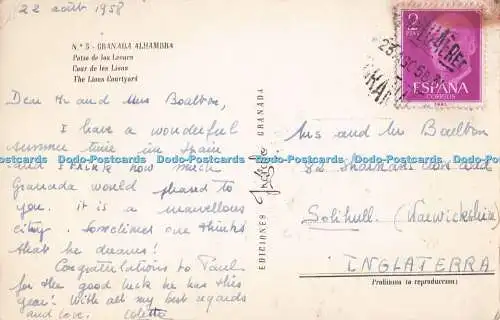 22 août 1958
N.º 5 - GRANADA ALHAMBRA
Patio de los Leones
Cour de les Lions
The Lions Courtyard
Dear Mr and Mrs Boulton,
I have a wonderful
summer time in Spain
and I how much
Granada would pleased to
you. it is a marvellous
city. Sometimes one thinks
that he dreams!
Congratulations to Paul
for the good luck he has this
year! With all my best regards
and love. Colette
EDICIONES
GRANADA
2
PTAS
ESPAÑA
CORREOS
Mrs and Mr Boulton
Solihull (Warwickshire)
INGLATERRA
Prohibida la reproducción
Postcards-Postcards-Postcards.co.uk